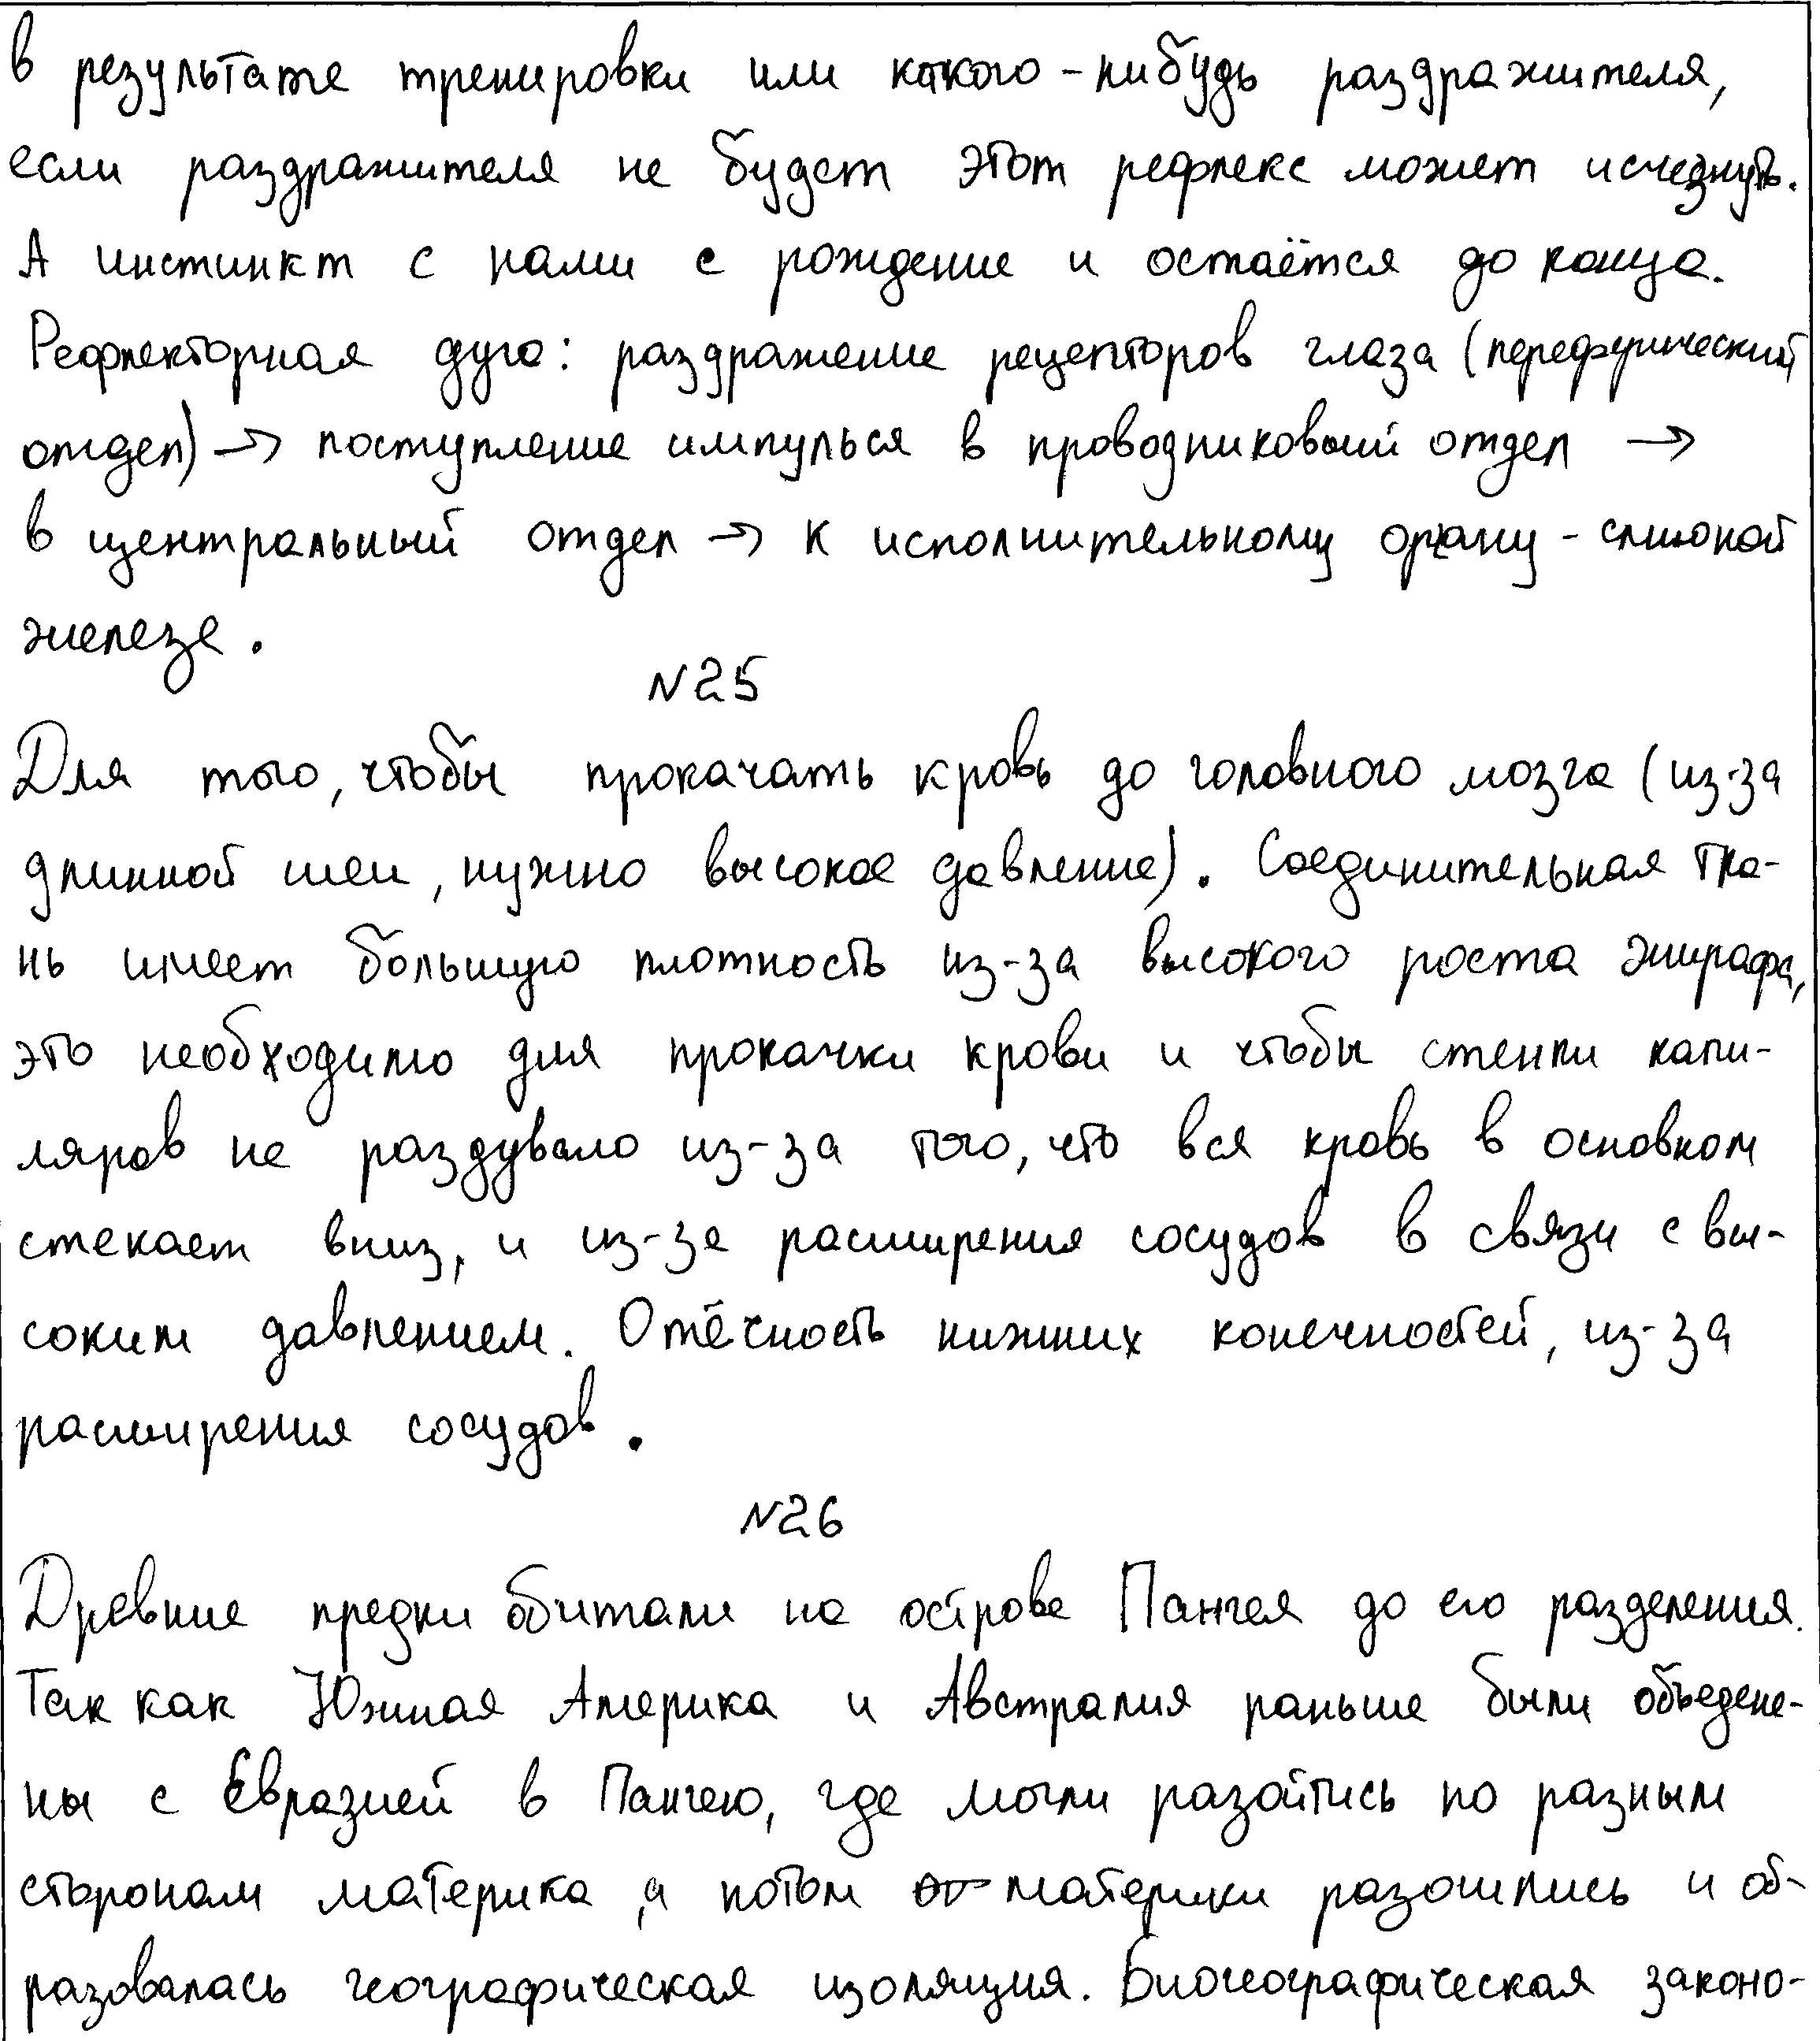 в результате тренировки или какого-нибудь раздражителя,
если раздражителя не будет этот рефлекс может исчезнуть.
А инстинкт с нами с рождение и остаётся до конца.
Рефлекторная дуга: раздражение рецепторов глаза (переферический
отдел) → поступление импульса в проводниковый отдел →
в центральный отдел → к исполнительному органу - слюной
железе.
№25
Для того, чтобы прокачать кровь до головного мозга (из-за
длинной шеи, нужно высокое давление). Соединительная тка-
нь имеет большую плотность из-за высокого роста жирафа,
это необходимо для прокачки крови и чтобы стенки капи-
ляров не раздувало из-за того, что вся кровь в основном
стекает вниз, и из-за расширения сосудов в связи с вы-
соким давлением. Отёчность нижних конечностей, из-за
расширения сосудов.
№26
Древние предки обитали на острове Пангея до его разделения.
Так как Южная Америка и Австралия раньше были объедене-
ны с Евразией в Пангею, где могли разойтись по разным
сторонам материка, а потом материки разошлись и об-
разовалась географическая изоляция. Биогеографическая законо-